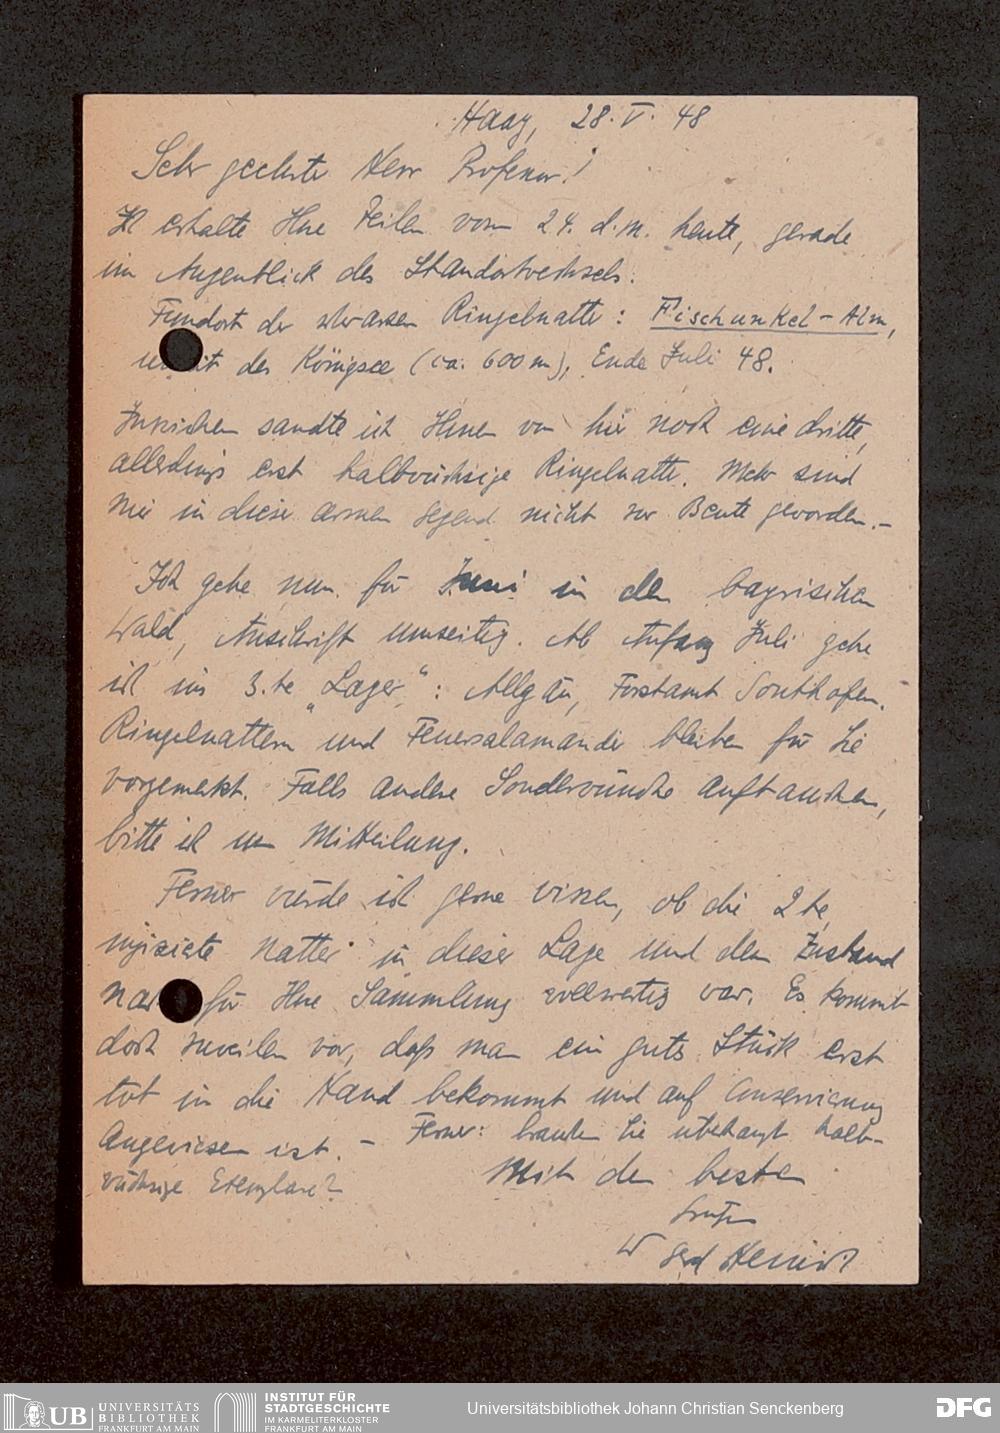 Haag, 28. V. 48
Sehr geehrter Herr Professor!
Ich erhalte Ihre Zeilen vom 24. d. M. heute, gerade
im Augenblick des Standortwechsels.
Fundort der schwarzen Ringelnatter: Fischunkel-Alm,
des Königsee (ca. 600 m), Ende Juli 48.
Inzwischen sandte ich Ihnen von hier noch eine dritte,
allerdings erst halbwüchsige Ringelnatter. Mehr sind
mir in dieser armen Gegend nicht zur Beute geworden. –
Ich gehe nun für Juni in den bayrischen
Wald, Anschrift umseitig. Ab Anfang Juli gehe
ich ins 3.te „Lager“: Allgäu, Forstamt Sonthofen.
Ringelnattern und Feuersalamander bleiben für Sie
vorgemerkt. Falls andere Sonderwünsche auftauchen,
bitte ich um Mitteilung.
Ferner würde ich gerne wissen, ob die 2te
injizierte Natter in dieser Lage und dem Zustand
für Ihre Sammlung vollwertig war. Es kommt
doch zuweilen vor, daß man ein gutes Stück erst
tot in die Hand bekommt und auf Conservierung
angewiesen ist. – Ferner: brauchen Sie überhaupt halb-
wüchsige Exemplare?
Mit den besten
Grüßen
Gerd
UB UNIVERSITÄTS
BIBLIOTHEK
FRANKFURT AM MAIN
INSTITUT FÜR
STADTGESCHICHTE
IM KARMELITERKLOSTER
FRANKFURT AM MAIN
Universitätsbibliothek Johann Christian Senckenberg
DFG